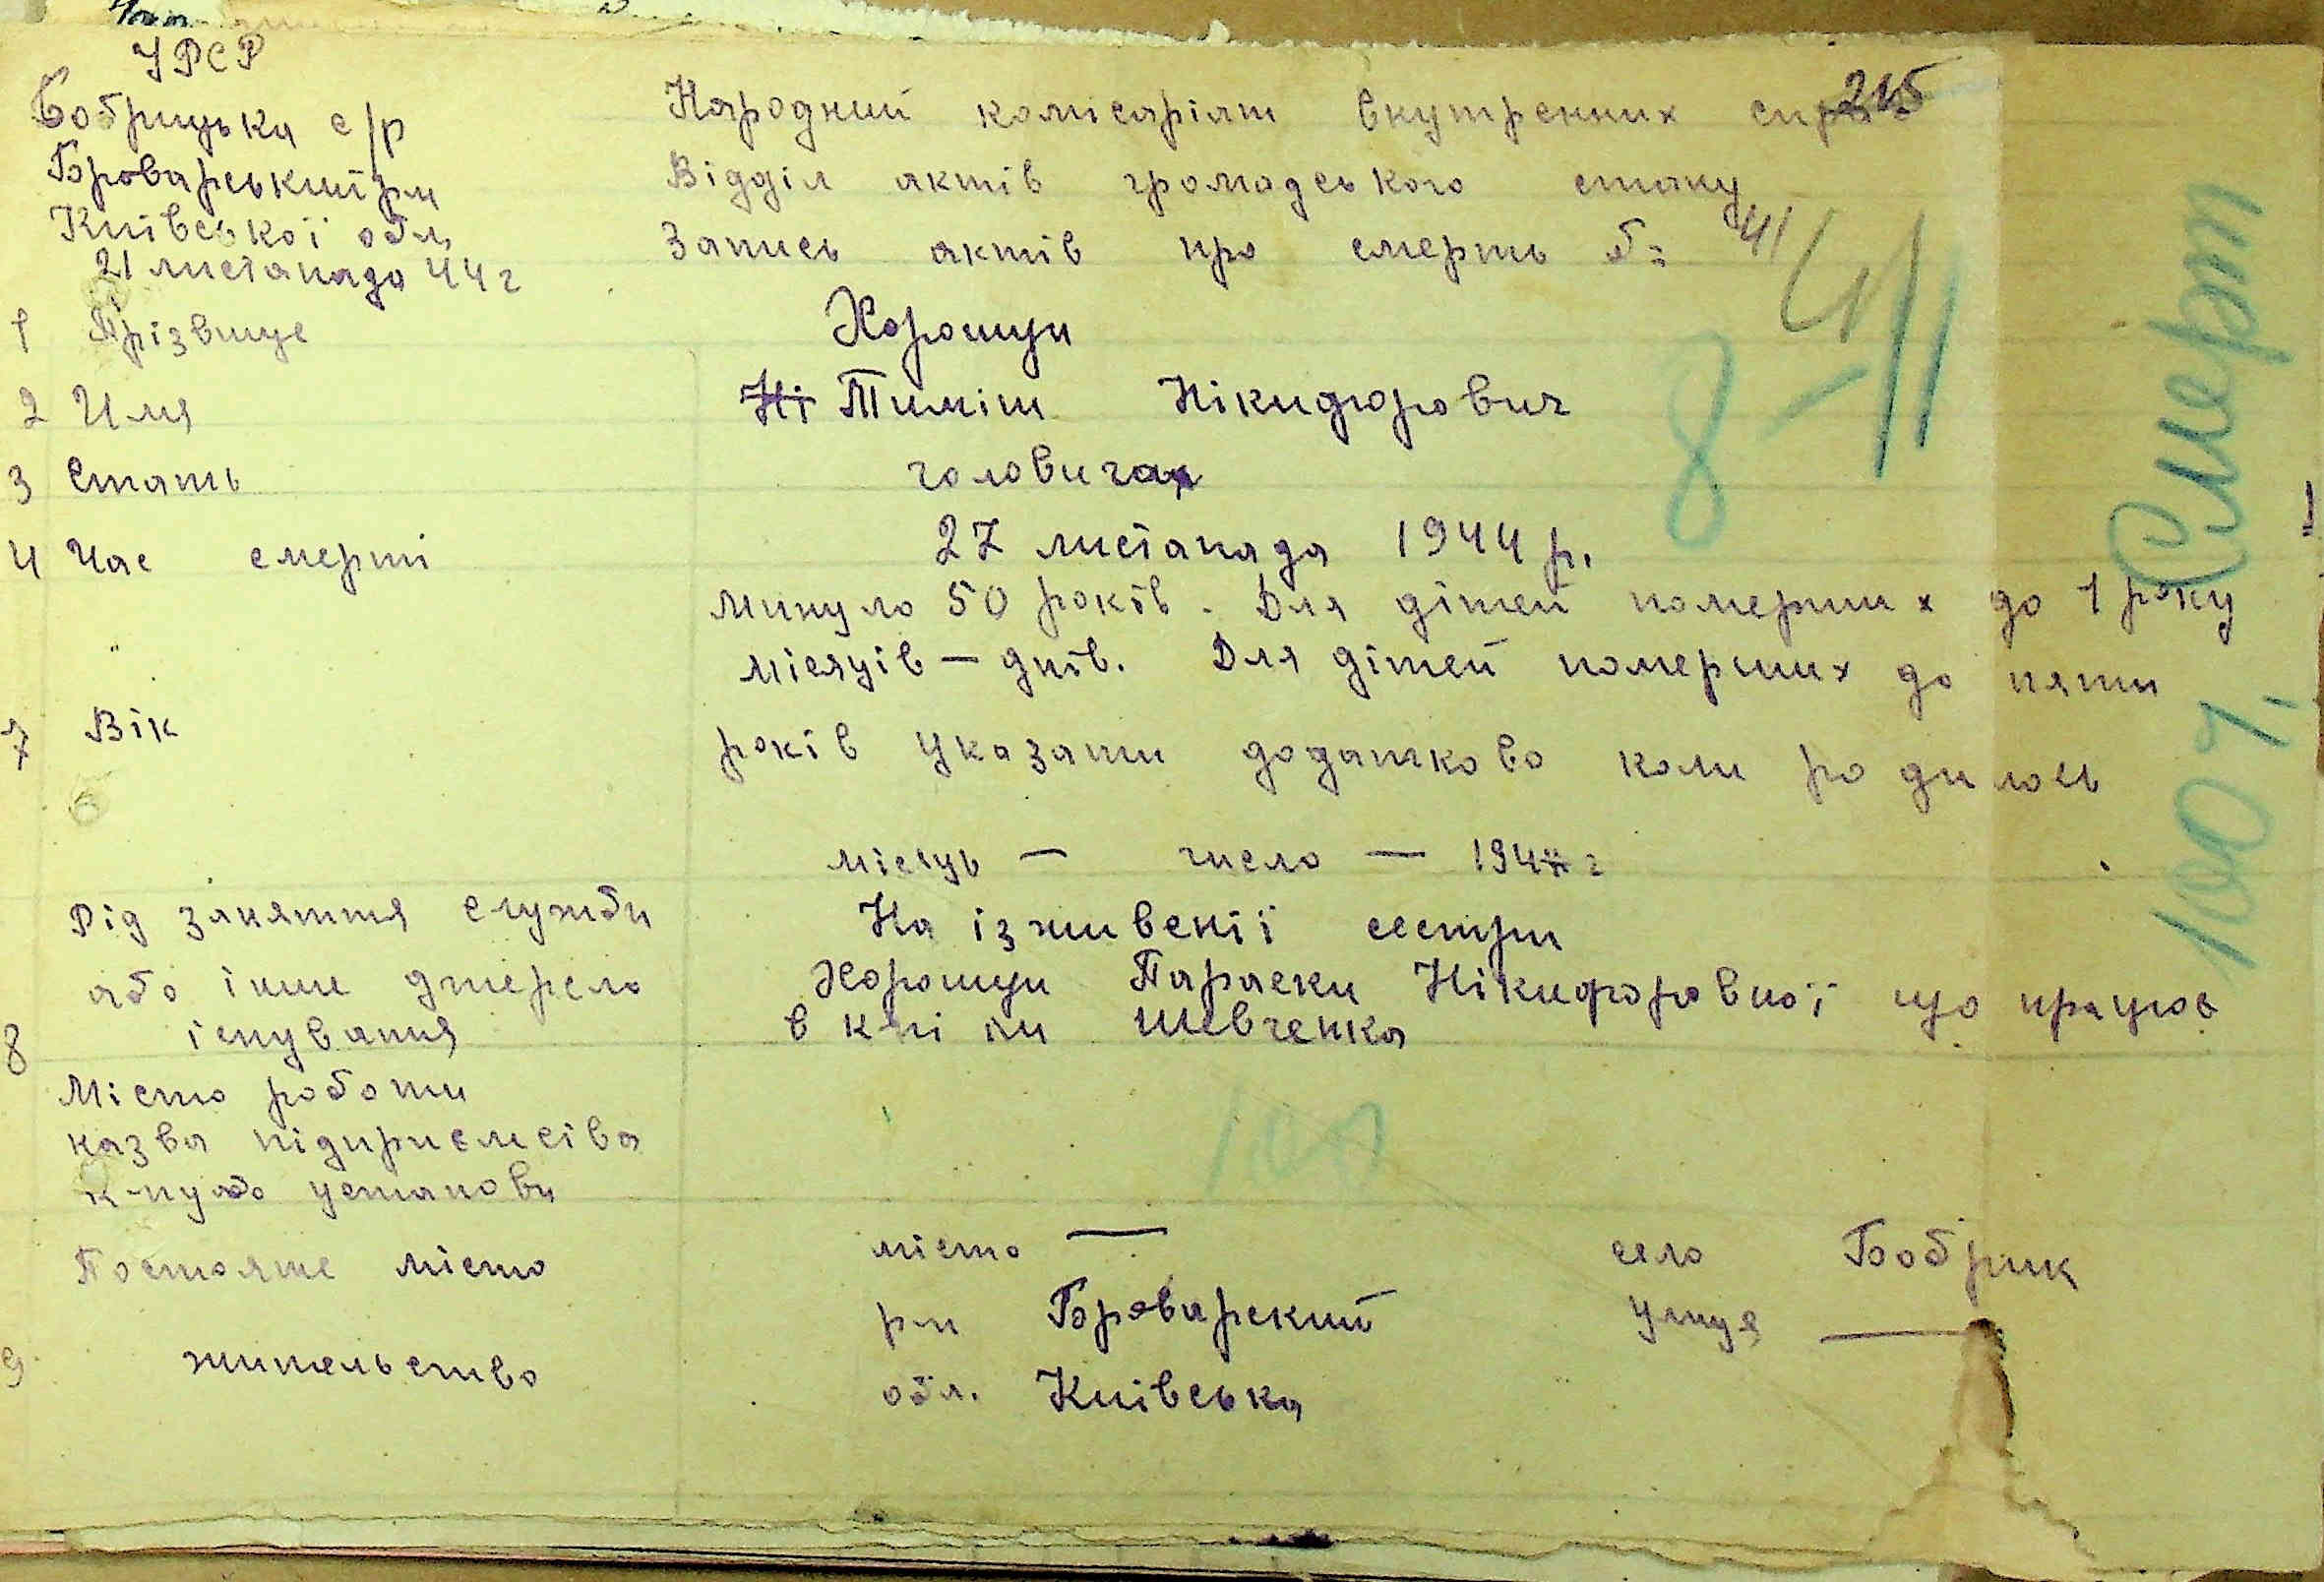 УРСР
215
Бобрицька с/р
Народний комісаріат внутренних справ
Броварський рн
Відділ актів громадського стану
Київської обл,
Запись актів про смерть № 41
21 листапада 44 г
41
8 - 11
Смерт
1 Прізвище
Хорошун
2 Имя
Ні Тиміш Нікифорович
3 Стать
чоловича
4 Час смерті
27 листапада 1944 р.
минуло 50 років. Для дітей померших до 1 року
місяців — днів. Для дітей померших до пяти
7 Вік
років указати додатково коли родилось
100%
місяць — число — 194 г
Рід заняття служби
На іживенії сестри
або інше джерело
Хорошун Параски Нікифоровної що працює
8 існування
в к-пі им Шевченка
Місто роботи
назва підприємства
к-пу або установи
Постояне місто
місто —
село Бобрик
рн Броварский
улиця —
9 жительство
обл. Київська